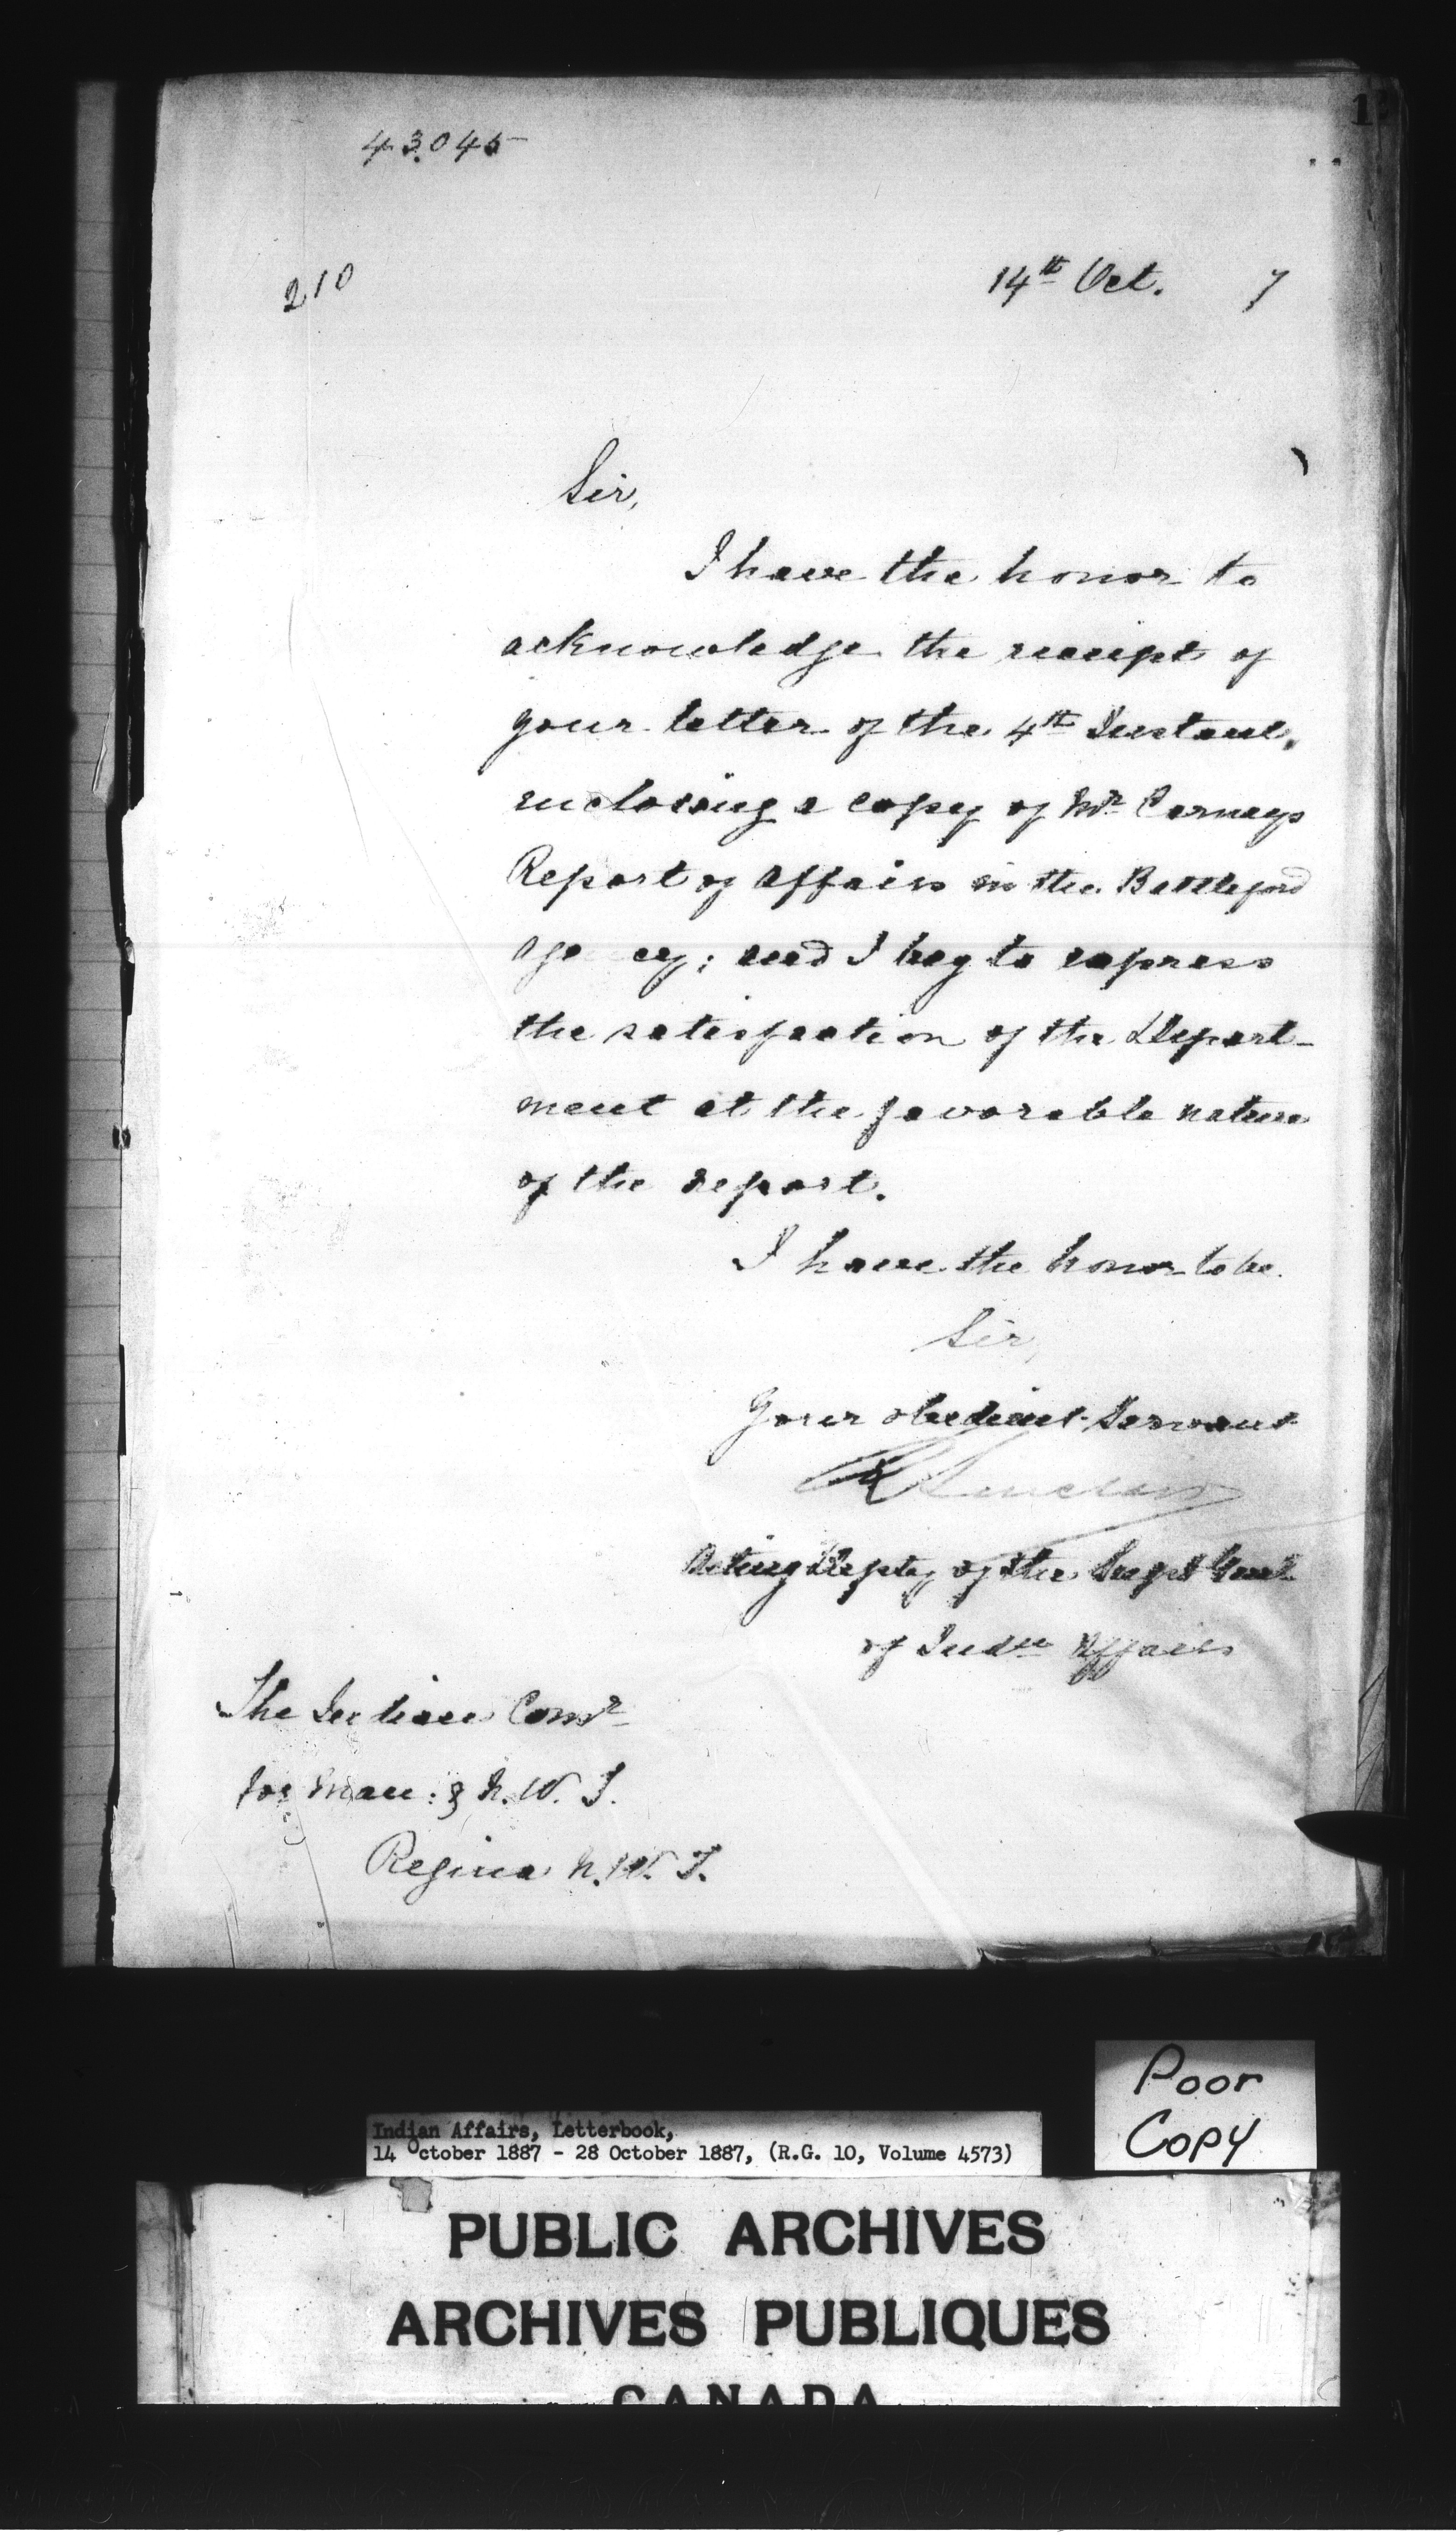 1
43.045
210
14th Oct. 7
Sir,
I have the honor to
acknowledge the receipt of
your letter of the 4th Instant,
enclosing a copy of Mr. Carneys
Report of Affairs in the Battleford
Agency; and I beg to express
the satisfaction of the Depart-
ment at the favorable nature
of the report.
I have the honor to be
Sir,
Your obedient Servant
R Sinclair
Acting Depty of the Supt Genl
of Indn Affairs
The Indian Comr
for Man: & N.W.T.
Regina N.W.T.
Poor
Copy
Indian Affairs, Letterbook,
14 October 1887 - 28 October 1887, (R.G. 10, Volume 4573)
PUBLIC ARCHIVES
ARCHIVES PUBLIQUES
CANADA